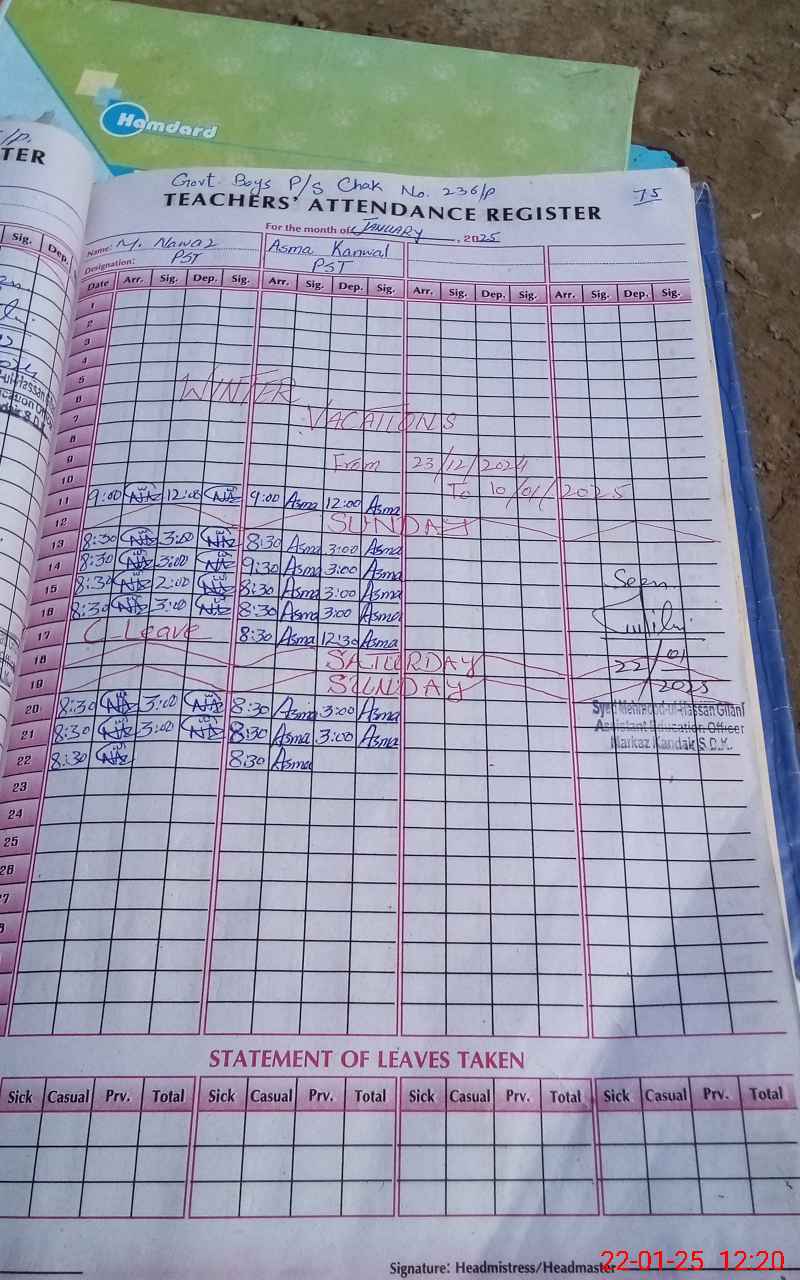 Hamdard
/P.
TER
Govt. Boys P/S Chak No. 236/P
75
TEACHERS' ATTENDANCE REGISTER
For the month of JANUARY, 2025
Name: M. Nawaz Asma Kanwal
Designation: PST PST
Sig. Dep.
Date Arr. Sig. Dep. Sig. Arr. Sig. Dep. Sig. Arr. Sig. Dep. Sig. Arr. Sig. Dep. Sig.
1
2
3
4
5
6 WINTER
7 VACATIONS
8
9 From 23/12/2024
10 To 10/01/2025
11 9:00 12:00 9:00 Asma 12:00 Asma
12 SUNDAY
13 8:30 3:00 8:30 Asma 3:00 Asma
14 8:30 3:00 9:30 Asma 3:00 Asma
15 8:30 2:00 8:30 Asma 3:00 Asma
16 8:30 3:00 8:30 Asma 3:00 Asma
17 C Leave 8:30 Asma 12:30 Asma
18 SATURDAY
19 SUNDAY
20 8:30 3:00 8:30 Asma 3:00 Asma
21 8:30 3:00 8:30 Asma 3:00 Asma
22 8:30 8:30 Asma
23
24
25
26
27
Seen.
22/01/2025
Syed Mehmood-ul-Hassan Gilani
Assistant Education Officer
Markaz Kandak S.D.K.
STATEMENT OF LEAVES TAKEN
Sick Casual Prv. Total Sick Casual Prv. Total Sick Casual Prv. Total Sick Casual Prv. Total
Signature: Headmistress/Headmaster
22-01-25 12:20